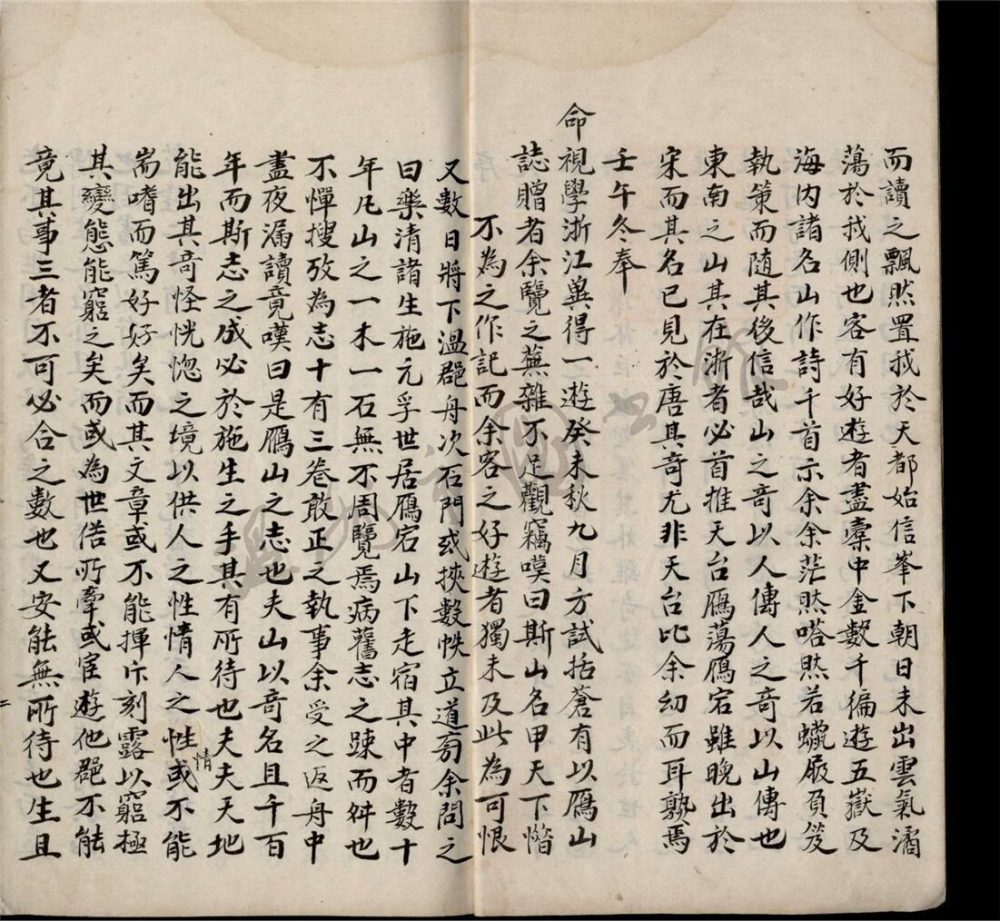 而讀之飄然置我於天都始信峯下朝日未出雲氣潏
蕩於我側也客有好遊者盡橐中金數千徧遊五嶽及
海內諸名山作詩千首示余余茫然嗒然若蠟屐負笈
執策而随其後信哉山之奇以人傳人之奇以山傳也
東南之山其在浙者必首推天台鴈蕩鴈宕雖晚出於
宋而其名已見於唐其奇尤非天台比余幼而耳熟焉
壬午冬奉
命視學浙江兾得一遊癸未秋九月方試括蒼有以鴈山
誌贈者余覽之蕪雜不足觀竊嘆曰斯山名甲天下惜
不為之作記而余客之好遊者獨未及此為可恨
又數日將下溫郡舟次石門或挾數帙立道旁余問之
曰樂清諸生施元孚世居鴈宕山下走宿其中者數十
年凡山之一木一石無不周覽焉病舊志之踈而舛也
不憚搜攷為志十有三巻敢正之執事余受之返舟中
盡夜漏讀竟嘆曰是鴈山之志也夫山以奇名且千百
年而斯志之成必於施生之手其有所待也夫夫天地
能出其奇怪恍惚之境以供人之性情人之性或不能
情
耑嗜而篤好好矣而其文章或不能揮斥刻露以窮極
其變態能窮之矣而或為世俗所牽或宦遊他郡不能
竟其事三者不可必合之數也又安能無所待也生且